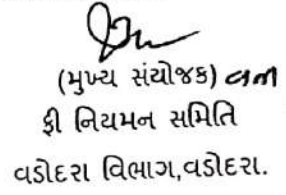 (મુખ્ય સંયોજક) વતી
ફી નિયમન સમિતિ
વડોદરા વિભાગ,વડોદરા.